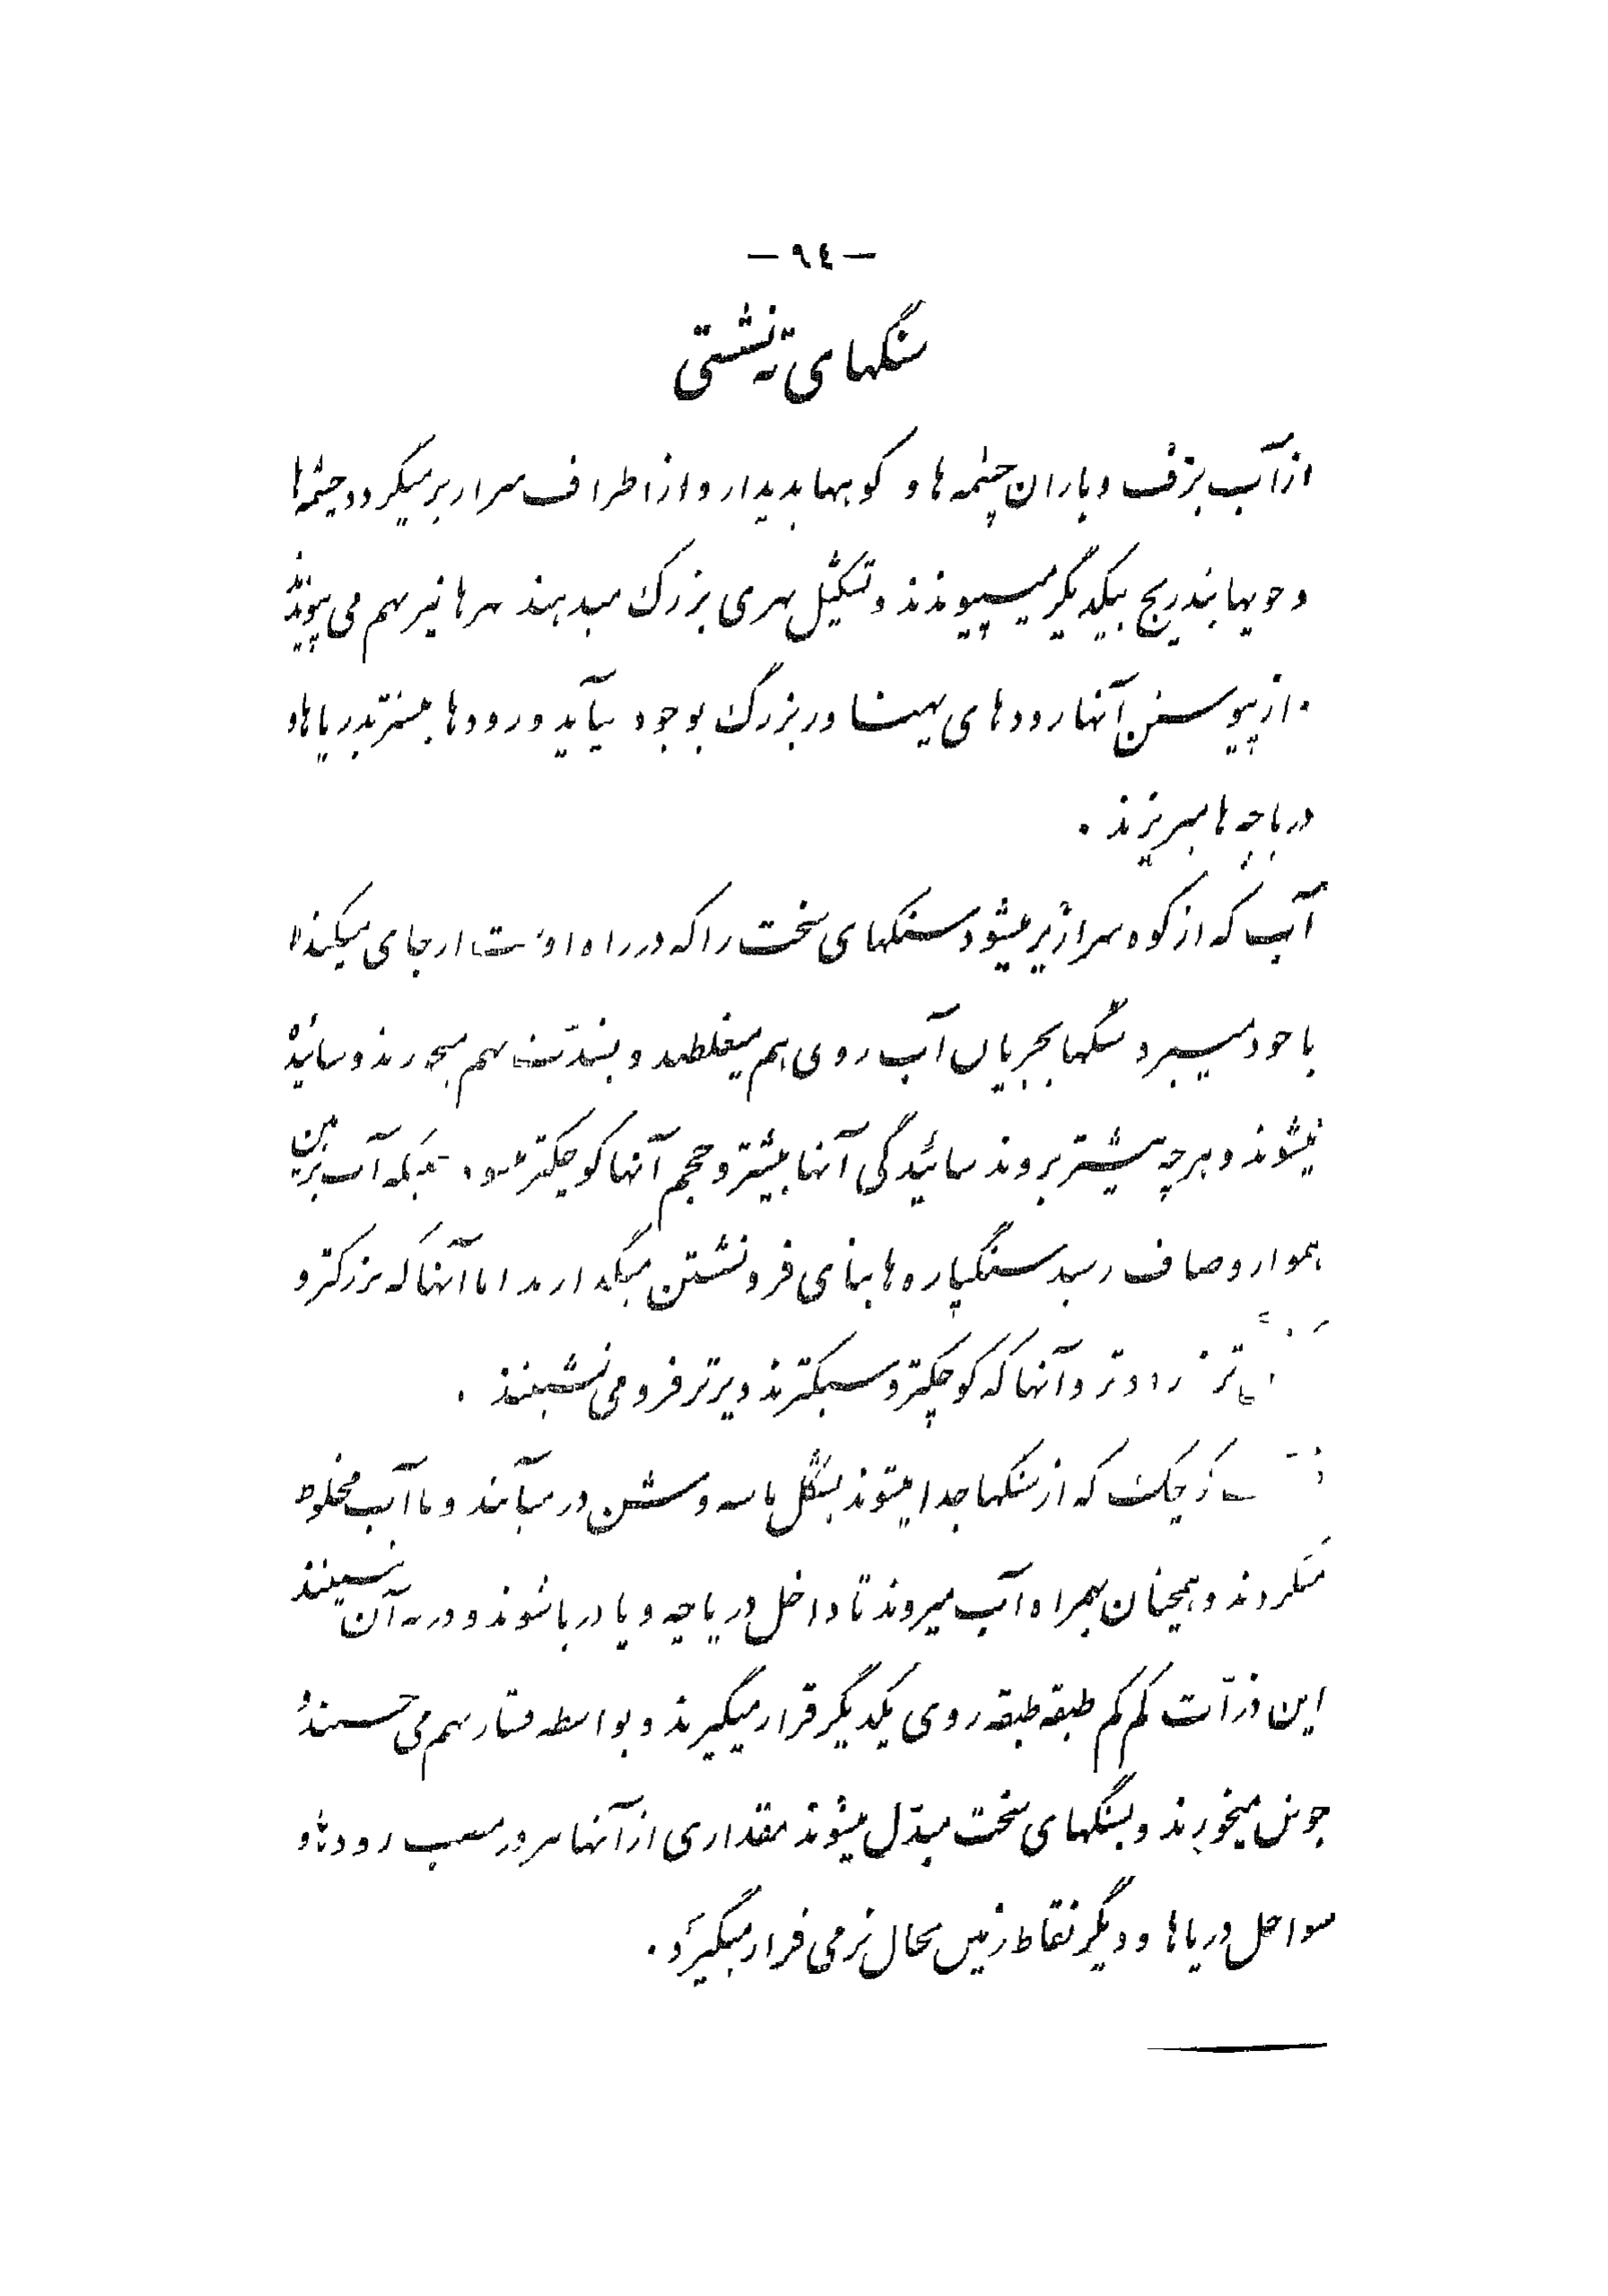 — ٩٤ —
سنگهای ته نشستی
از آب برف و باران چشمه ها و کوهها پدیدار و از اطراف سرازیر میگردد چشمه ها
و جویها بتدریج بیکدیگر میپیوندند و تشکیل نهری بزرگ میدهند نهرها نیز بهم می پیوندند
از پیوستن آنها رودهای پهناور بزرگ بوجود میآید و رودها بیشتر بدریاها و
دریاچه ها میریزند .
آب که از کوه سرازیر میشود سنگهای سخت را که در راه اوست از جای میکند و
با خود میبرد سنگها بجریان آب روی هم میغلطند و بشدت بهم میخورند و سائیده
میشوند و هرچه بیشتر بروند سائیدگی آنها بیشتر و حجم آنها کوچکتر میشود . همینکه آب بزمین
هموار و صاف رسید سنگپاره ها بنای فرونشستن میگذارند اما آنها که بزرگتر و
تر زودتر و آنها که کوچکتر و سبکترند دیرتر فرو می نشینند .
کوچک که از سنگها جدا میشوند بشکل ماسه و شن در میآیند و با آب مخلوط
میگردند و همچنان بهمراه آب میروند تا داخل دریاچه و یا دریا شوند و در ته آن نشینند
این ذرات کم کم طبقه طبقه روی یکدیگر قرار میگیرند و بواسطه فشار بهم می چسبند و
جوش میخورند و بسنگهای سخت مبدل میشوند مقداری از آنها نیز در مصب رودها و
سواحل دریاها و دیگر نقاط زمین بحال نرمی قرار میگیرد .